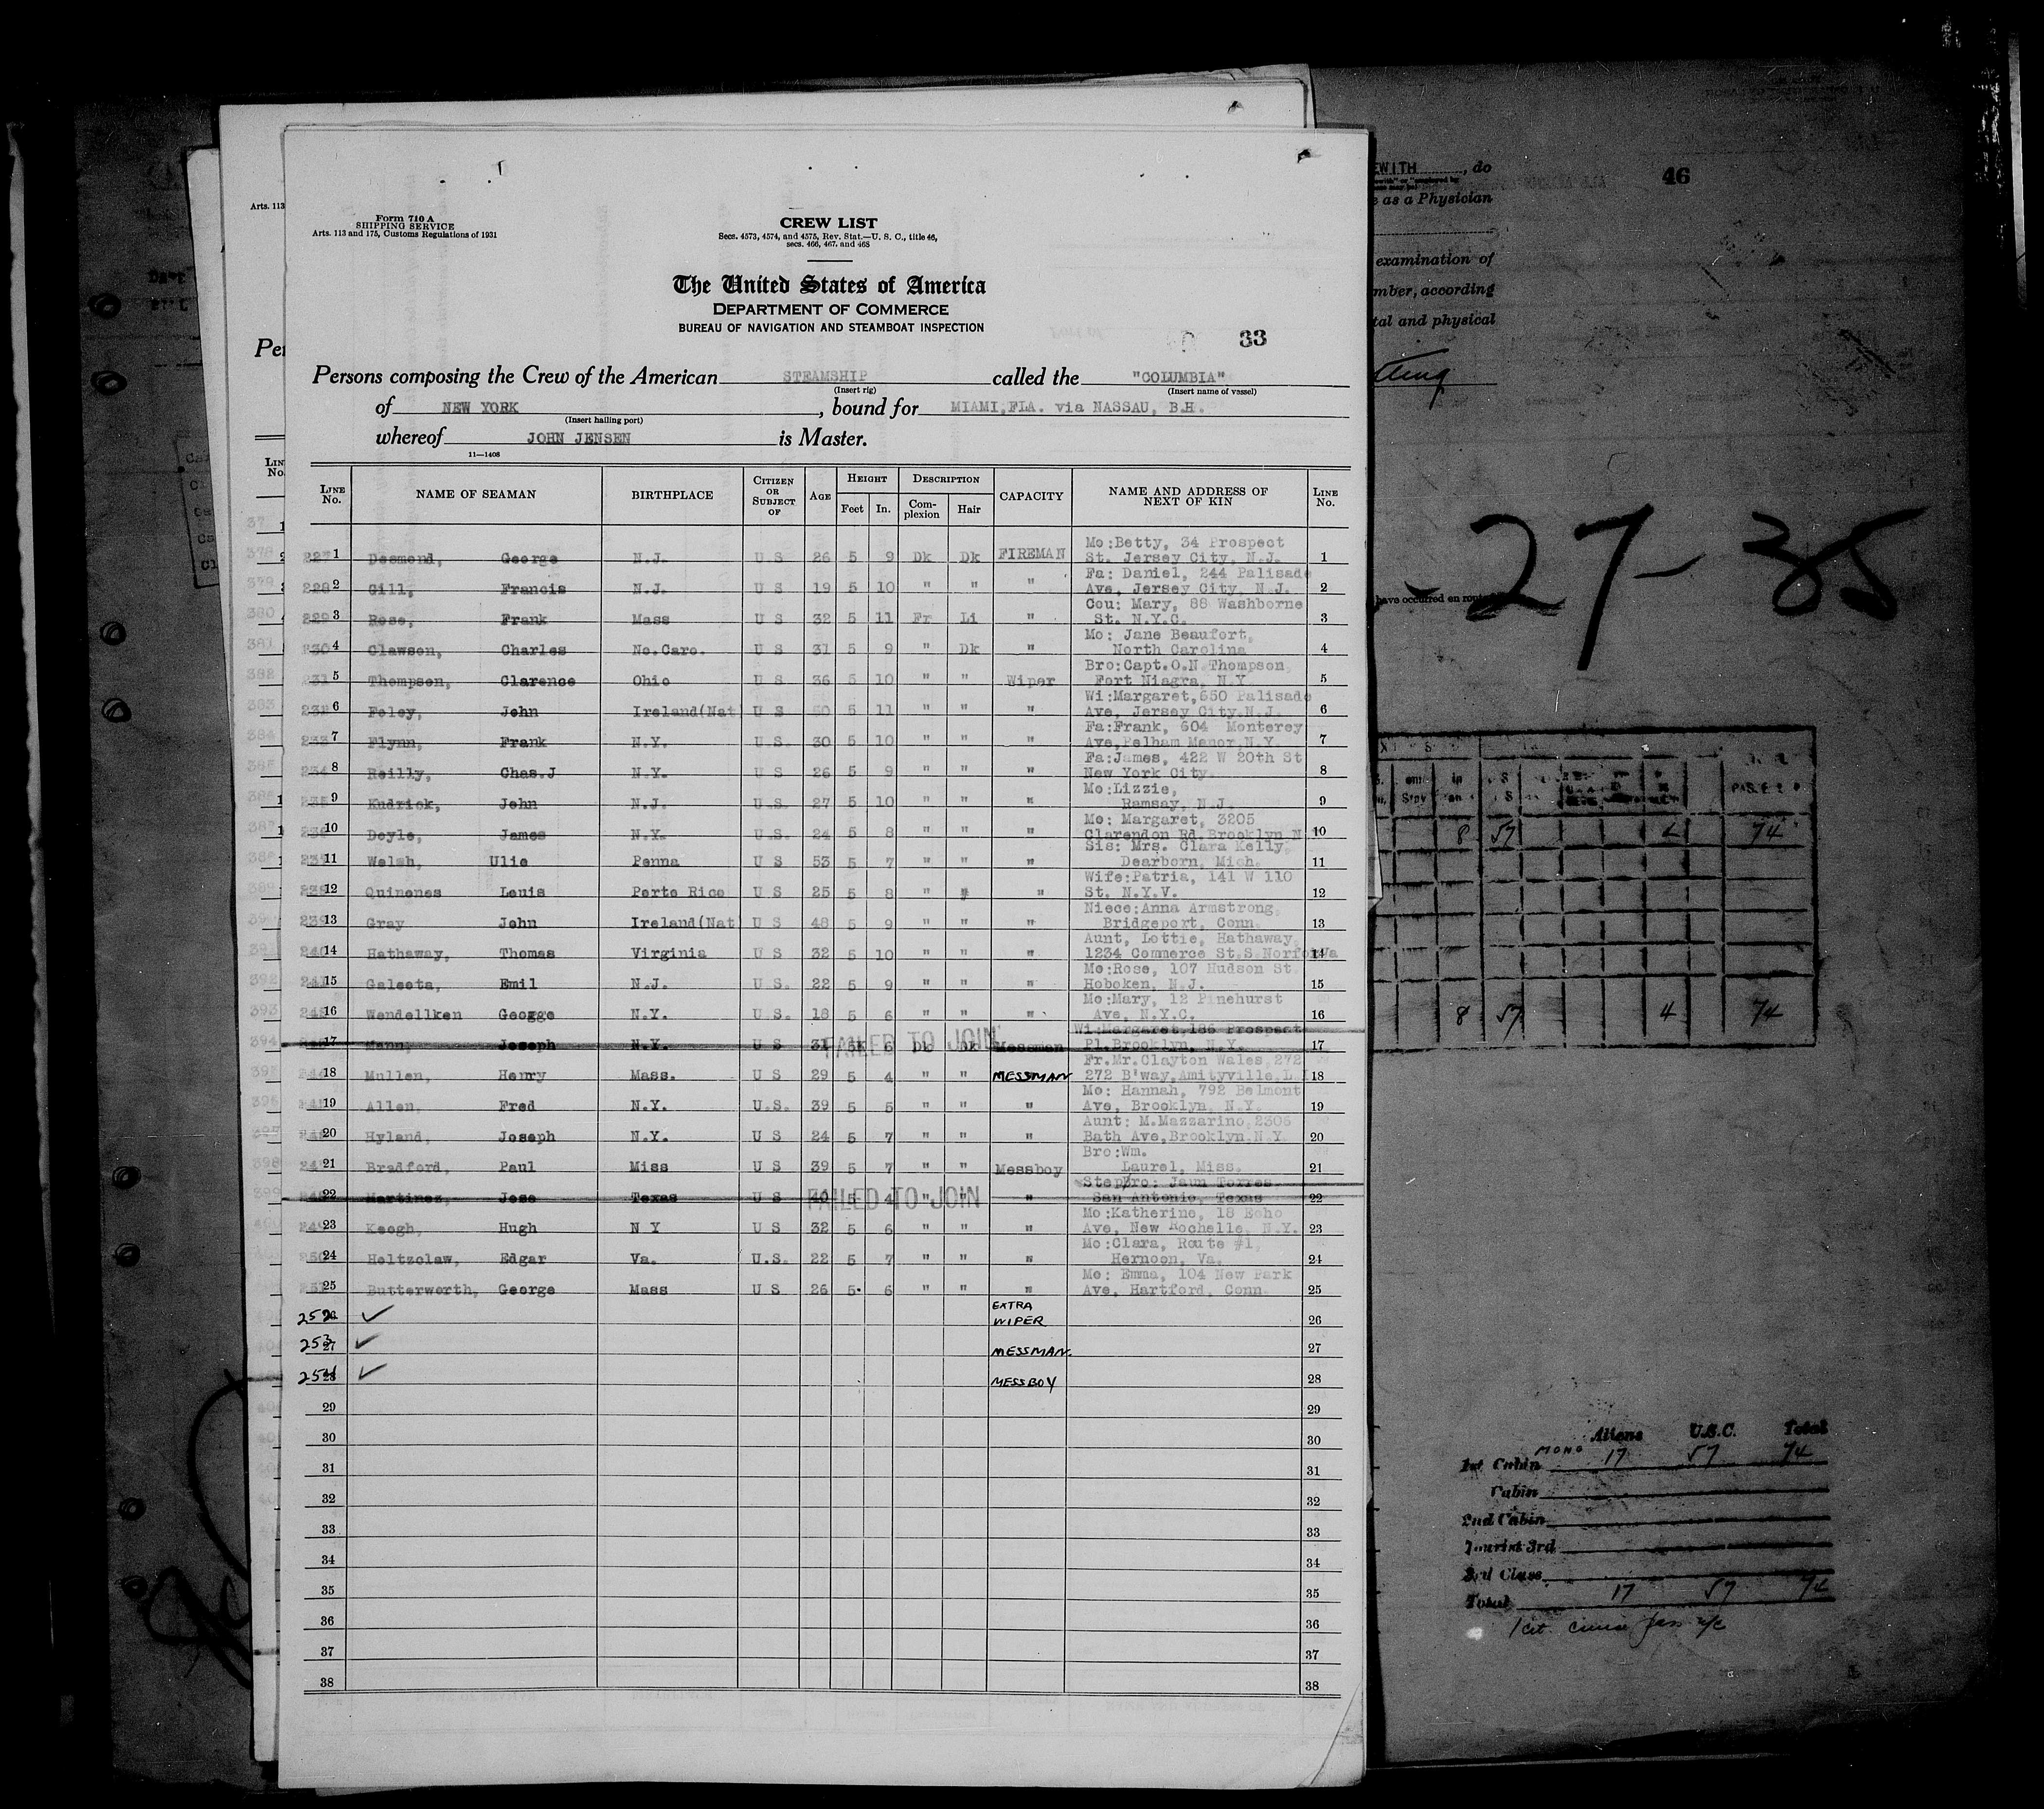 Form 710 A
SHIPPING SERVICE
Arts. 113 and 175, Customs Regulations of 1931
CREW LIST
Secs. 4573, 4574, and 4575, Rev. Stat.—U. S. C., title 46,
secs. 466, 467, and 468
The United States of America
DEPARTMENT OF COMMERCE
BUREAU OF NAVIGATION AND STEAMBOAT INSPECTION
33
Persons composing the Crew of the American STEAMSHIP called the "COLUMBIA"
(Insert rig) (Insert name of vessel)
of NEW YORK, bound for MIAMI, FLA. via NASSAU, B.H.
(Insert hailing port)
whereof JOHN JENSEN is Master.
11—1408
LINE No. NAME OF SEAMAN BIRTHPLACE CITIZEN OR SUBJECT OF AGE HEIGHT Feet In. DESCRIPTION Complexion Hair CAPACITY NAME AND ADDRESS OF NEXT OF KIN LINE No.
227 1 Desmond, George N.J. U S 26 5 9 Dk Dk FIREMAN Mo:Betty, 34 Prospect St. Jersey City, N.J. 1
228 2 Gill, Francis N.J. U S 19 5 10 " " " Fa: Daniel, 244 Palisade Ave, Jersey City, N.J. 2
229 3 Rose, Frank Mass U S 32 5 11 Fr Li " Cou: Mary, 88 Washborne St. N.Y.C. 3
230 4 Clawson, Charles No.Caro. U S 31 5 9 " Dk " Mo: Jane Beaufort, North Carolina 4
231 5 Thompson, Clarence Ohio U S 36 5 10 " " Wiper Bro:Capt.O.N.Thompson, Fort Niagra, N.Y. 5
232 6 Foley, John Ireland(Nat U S 50 5 11 " " " Wi:Margaret,550 Palisade Ave, Jersey City.N.J. 6
233 7 Flynn, Frank N.Y. U.S. 30 5 10 " " " Fa:Frank, 604 Monterey Ave,Pelham Manor,N.Y. 7
234 8 Reilly, Chas.J N.Y. U S 26 5 9 " " " Fa:James, 422 W 20th St New York City. 8
235 9 Kudrick, John N.J. U.S. 27 5 10 " " " Mo:Lizzie, Ramsay, N.J. 9
236 10 Doyle, James N.Y. U.S. 24 5 8 " " " Mo: Margaret, 3205 Clarendon Rd.Brooklyn N 10
237 11 Welsh, Ulie Penna U S 53 5 7 " " " Sis: Mrs. Clara Kelly, Dearborn, Mich. 11
238 12 Quinones Louis Porto Rico U S 25 5 8 " " " Wife:Patria, 141 W 110 St. N.Y.V. 12
239 13 Gray John Ireland(Nat) U S 48 5 9 " " " Niece:Anna Armstrong, Bridgeport, Conn. 13
240 14 Hathaway, Thomas Virginia U S 32 5 10 " " " Aunt, Lottie, Hathaway, 1234 Commerce St.S.Norfor Va 14
241 15 Galeota, Emil N.J. U.S. 22 5 9 " " " Mo:Rose, 107 Hudson St. Hoboken, N.J. 15
242 16 Wendellken George N.Y. U.S. 18 5 6 " " " Mo:Mary, 12 Pinehurst Ave, N.Y.C. 16
17 Mann, Joseph N.Y. U S 31 5 6 Dk Dk Messman Wi:Margaret,186 Prospect Pl.Brooklyn, N.Y. 17
FAILED TO JOIN
18 Mullen, Henry Mass. U S 29 5 4 " " MESSMAN Fr.Mr.Clayton Wales,272 272 B'way,Amityville,L.I 18
19 Allen, Fred N.Y. U.S. 39 5 5 " " " Mo: Hannah, 792 Belmont Ave, Brooklyn, N.Y. 19
20 Hyland, Joseph N.Y. U S 24 5 7 " " " Aunt: M.Mazzarino,2306 Bath Ave,Brooklyn.N.Y. 20
21 Bradford, Paul Miss U S 39 5 7 " " Messboy Bro:Wm. Laurel, Miss. 21
22 Martinez, Jose Texas U S 40 5 4 " " " StepBro: Jaun Torres San Antonio, Texas 22
FAILED TO JOIN
249 23 Keogh, Hugh N Y U S 32 5 6 " " " Mo:Katherine, 18 Echo Ave, New Rochelle, N.Y. 23
250 24 Holtzclaw, Edgar Va. U.S. 22 5 7 " " " Mo:Clara, Route #1, Hernoon, Va. 24
251 25 Butterworth, George Mass U S 26 5 6 " " " Mo: Emma, 104 New Park Ave, Hartford, Conn. 25
252 26 ✓ EXTRA WIPER 26
253 27 ✓ MESSMAN. 27
254 28 ✓ MESSBOY 28
29 29
30 30
31 31
32 32
33 33
34 34
35 35
36 36
37 37
38 38
Arts. 113
Per
LIN
No.
EWITH, do
46
e as a Physician
examination of
mber, according
tal and physical
-27-35
have occurred en route
8 57 74
8 57 4 74
Aliens U.S.C. Total
1st Cabin MONO 17 57 74
Cabin
2nd Cabin
Tourist 3rd
3rd Class
Total 17 57 74